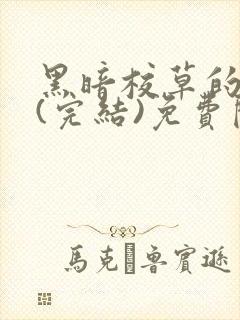 黑暗校草的
(完結)免費
馬克·魯賓遜